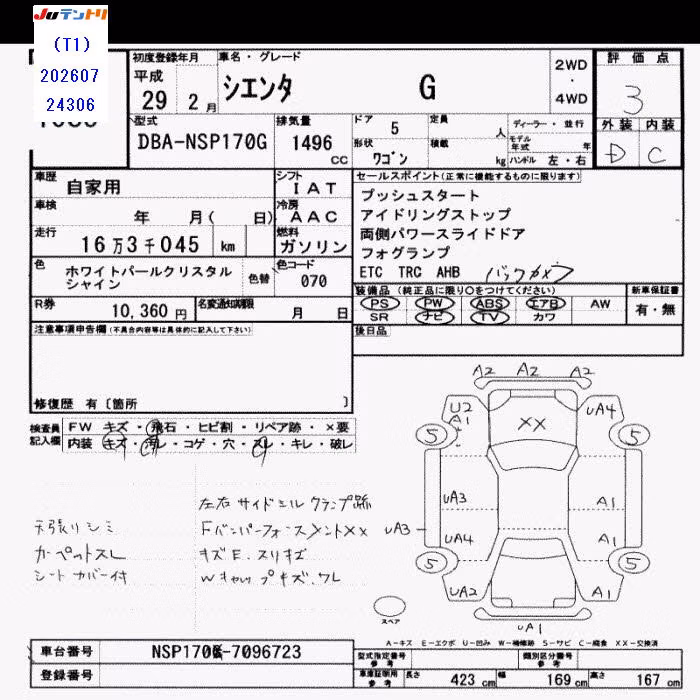 Juテントリ
(T1)
202607
24306
初度登録年月 車名・グレード
平成 29年 2月 シエンタ G 2WD・4WD
評価点
3
外装 内装
D C
型式 DBA-NSP170G 排気量 1496 CC
ドア 5 定員 人 ディーラー・並行
形状 ワゴン 積載 kg モデル年式 年
ハンドル 左・右
車歴 自家用 シフト IAT
車検 年 月( 日) 冷房 AAC
走行 16万3千045 km 燃料 ガソリン
色 ホワイトパールクリスタルシャイン 色替 色コード 070
R券 10,360円 名変通知期限 月 日
セールスポイント(正常に機能するものに限ります)
プッシュスタート
アイドリングストップ
両側パワースライドドア
フォグランプ
ETC TRC AHB バックカメラ
装備品(純正品に限り○をつけてください) 新車保証書
PS PW ABS エアB AW 有・無
SR ナビ TV カワ
後日品
注意事項申告欄(不具合内容等は具体的に記入して下さい)
修復歴 有〔箇所 〕
検査員記入欄 FW キズ・飛石・ヒビ割・リペア跡・×要
内装 キズ・汚レ・コゲ・穴・スレ・キレ・破レ
左右サイドシル クランプ跡
天張りシミ Fバンパーフォースメントxx
カーペットスレ キズE.スリキズ
シートカバー付 Wキャップキズ.ワレ
A2 A2 A2
U2 A1 XX UA4
5 5
UA3 A1
UA3 UA4 A1
5 5
UA2 A1
スペア UA1
A-キズ E-エクボ U-凹み W-補修跡 S-サビ C-腐食 XX-交換済
車台番号 NSP170-7096723
登録番号
型式指定番号 参考 類別区分番号 参考
車庫証明用 参考 長さ 423 cm 幅 169 cm 高さ 167 cm